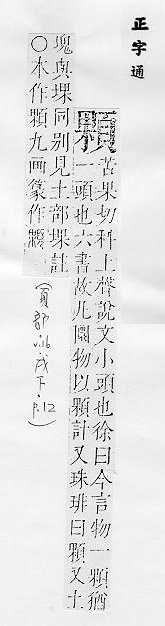 正字通
顆
苦果切科上聲說文小頭也徐曰今言物一顆猶
一頭也六書故凡圜物以顆計又珠琲曰顆又土
塊與堁同別見土部堁註
○本作顆九画篆作
(頁部 v.16 戌下. p.12)